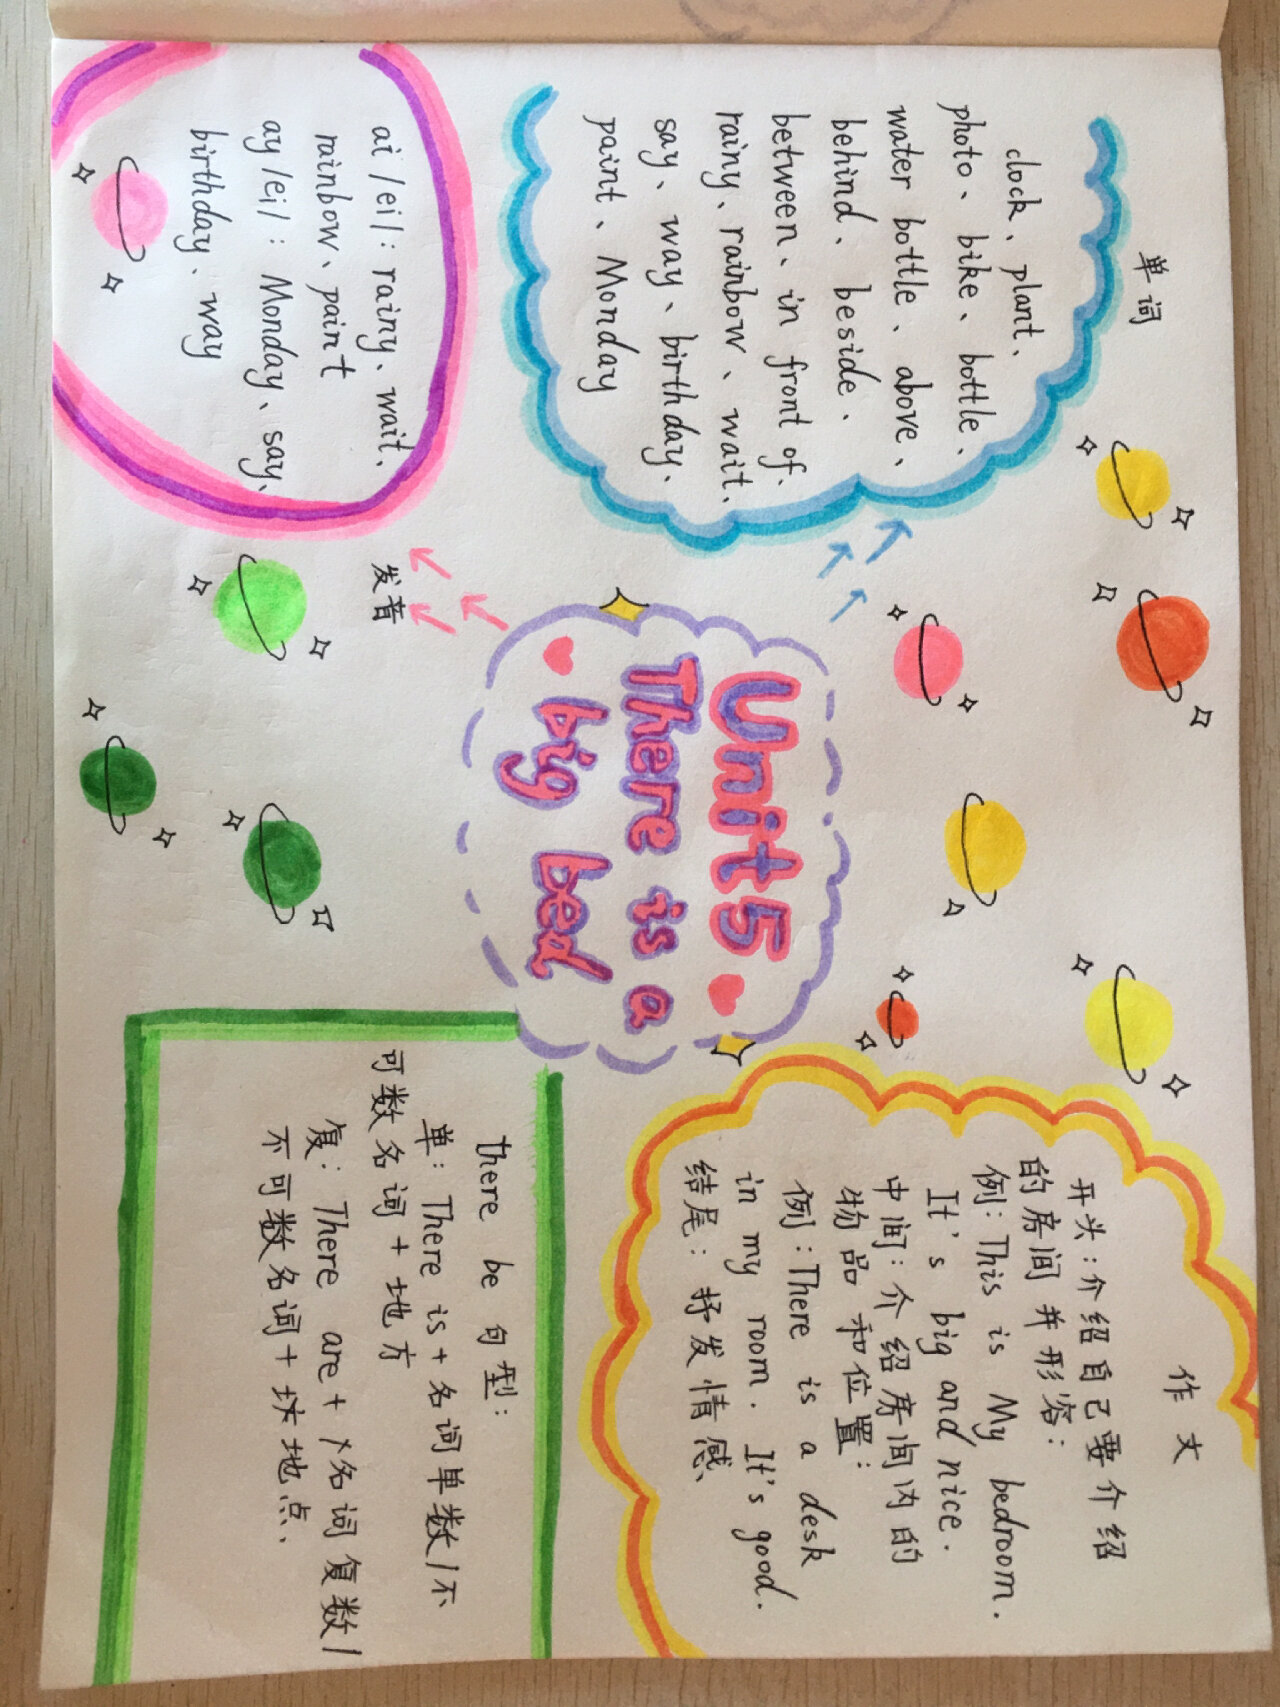 单词
clock、plant、
photo、bike、bottle、
water bottle、above、
behind、beside、
between、in front of、
rainy、rainbow、wait、
say、way、birthday、
paint、Monday
作文
开头:介绍自己要介绍
的房间并形容:
例:This is My bedroom.
It's big and nice.
中间:介绍房间内的
物品和位置:
例:There is a desk
in my room. It's good.
结尾:抒发情感、
Unit5
There is a
big bed
发音
ai /ei/: rainy、wait、
rainbow、paint
ay /ei/: Monday、say、
birthday、way
there be 句型:
单:There is+名词单数/不
可数名词+地方
复:There are+名词复数/
不可数名词+地点.